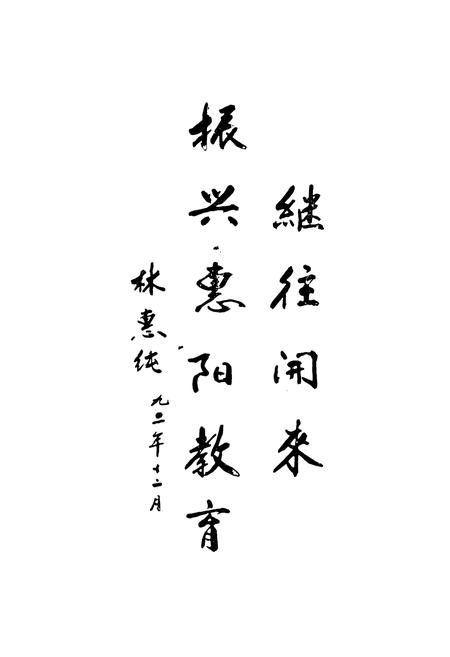 继往開來
振兴惠阳教育
林惠纯
九二年十二月